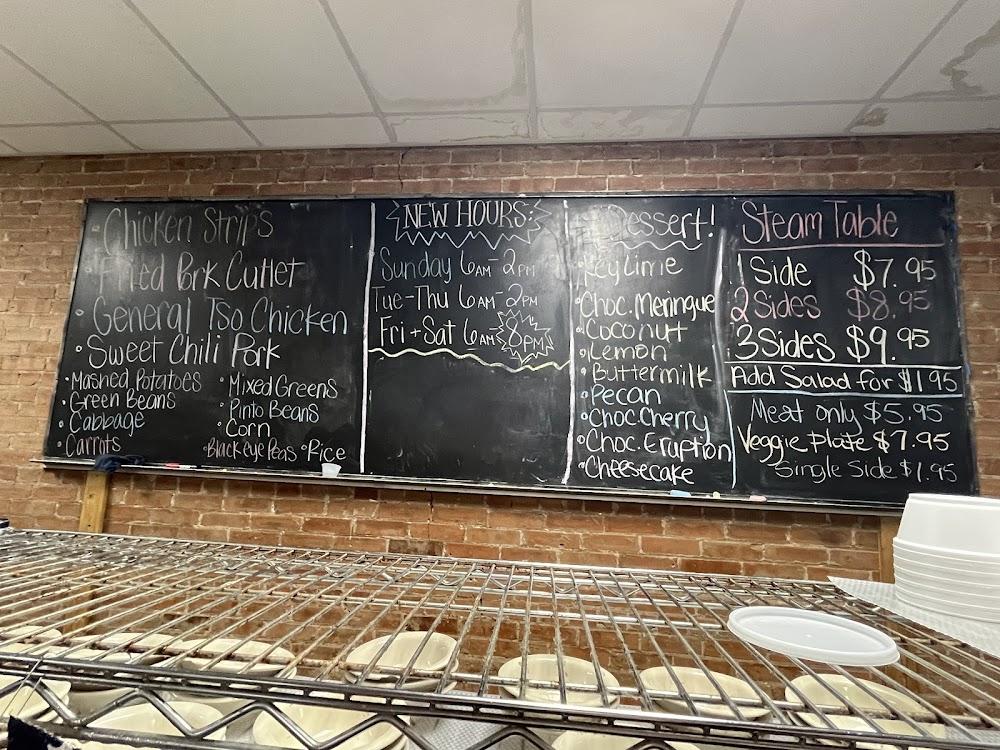 • Chicken Strips
• Fried Pork Cutlet
• General Tso Chicken
• Sweet Chili Pork
• Mashed Potatoes
• Green Beans
• Cabbage
• Carrots
• Mixed Greens
• Pinto Beans
• Corn
• Black eye Peas • Rice
NEW HOURS:
Sunday 6AM-2PM
Tue-Thu 6AM-2PM
Fri+Sat 6AM-8PM
Dessert!
• Key Lime
• Choc. Meringue
• Coconut
• Lemon
• Buttermilk
• Pecan
• Choc. Cherry
• Choc. Eruption
• Cheesecake
Steam Table
1 Side $7.95
2 Sides $8.95
3 Sides $9.95
Add Salad for $1.95
Meat only $5.95
Veggie plate $7.95
Single Side $1.95